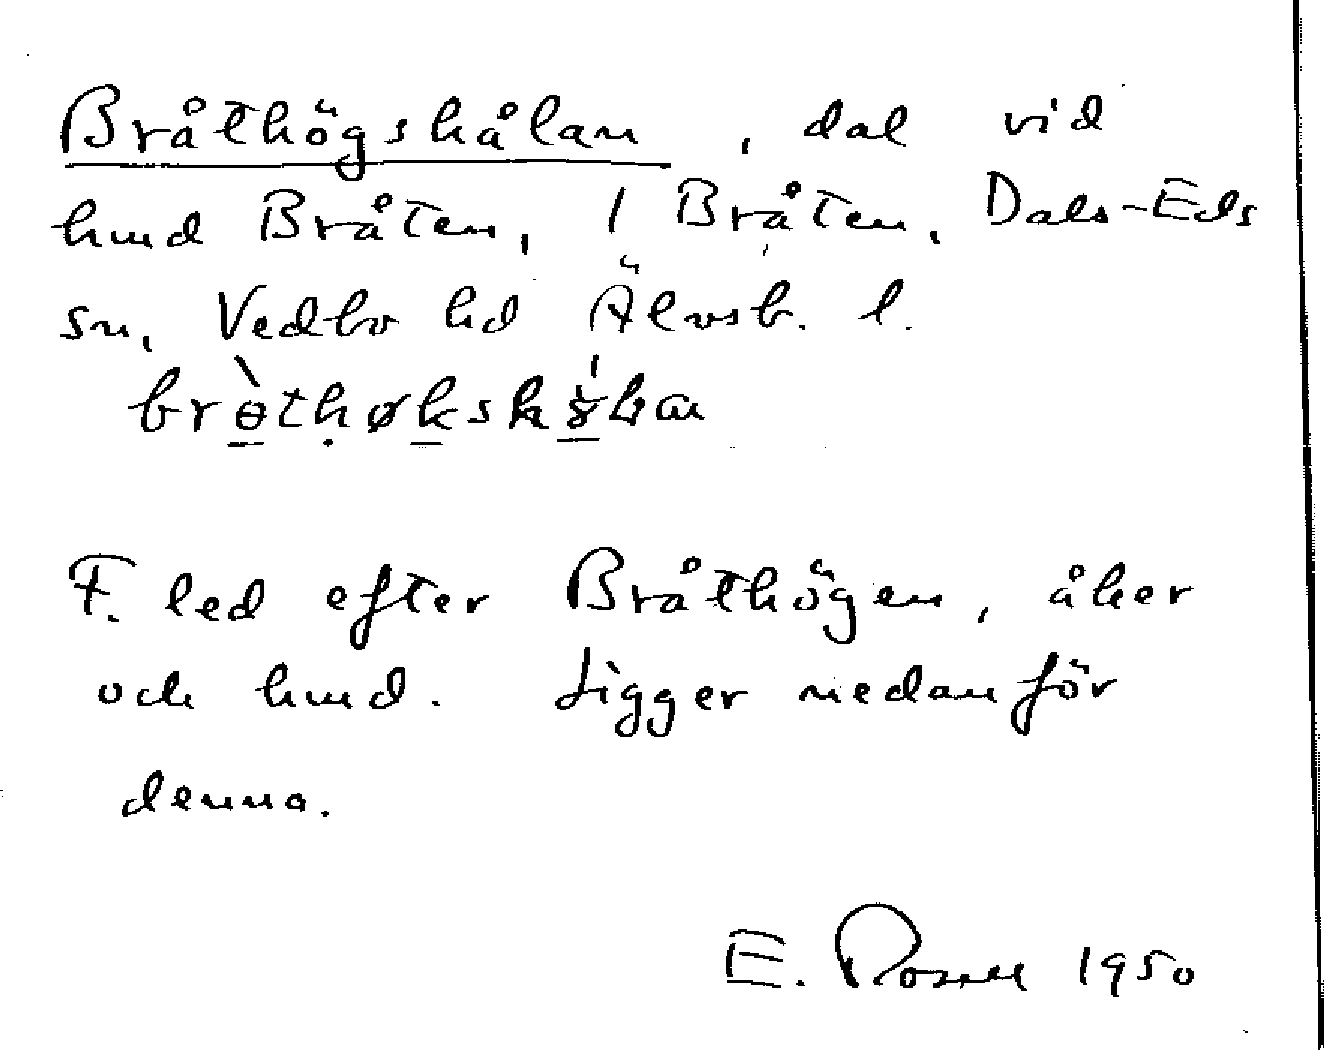 Bråthögskålan, dal vid
hmd Bråten, 1 Bråten, Dals-Eds
sn, Vedbo hd Älvsb. l.
F. led efter Bråthögen, åker
och hmd. Ligger nedanför
denna.
E. Rosell 1950